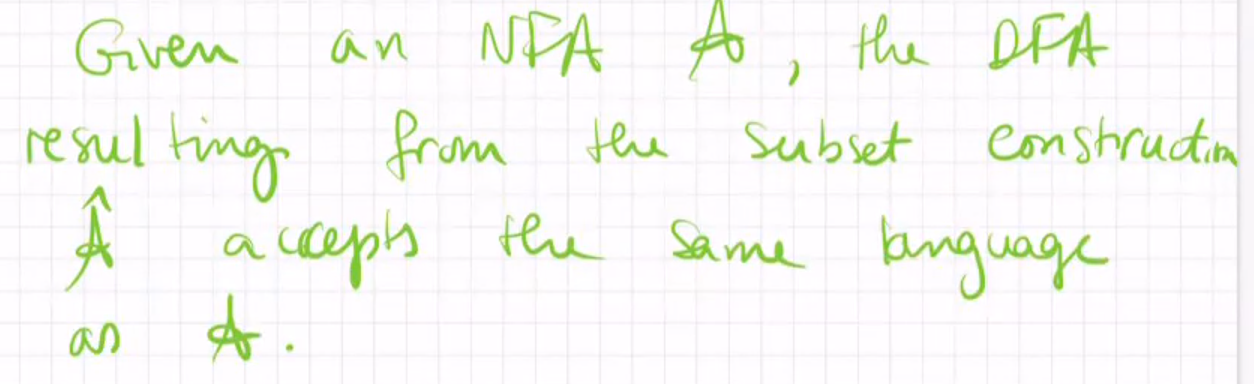 Given an NFA A, the DFA
resulting from the subset construction
Â accepts the same language
as A.